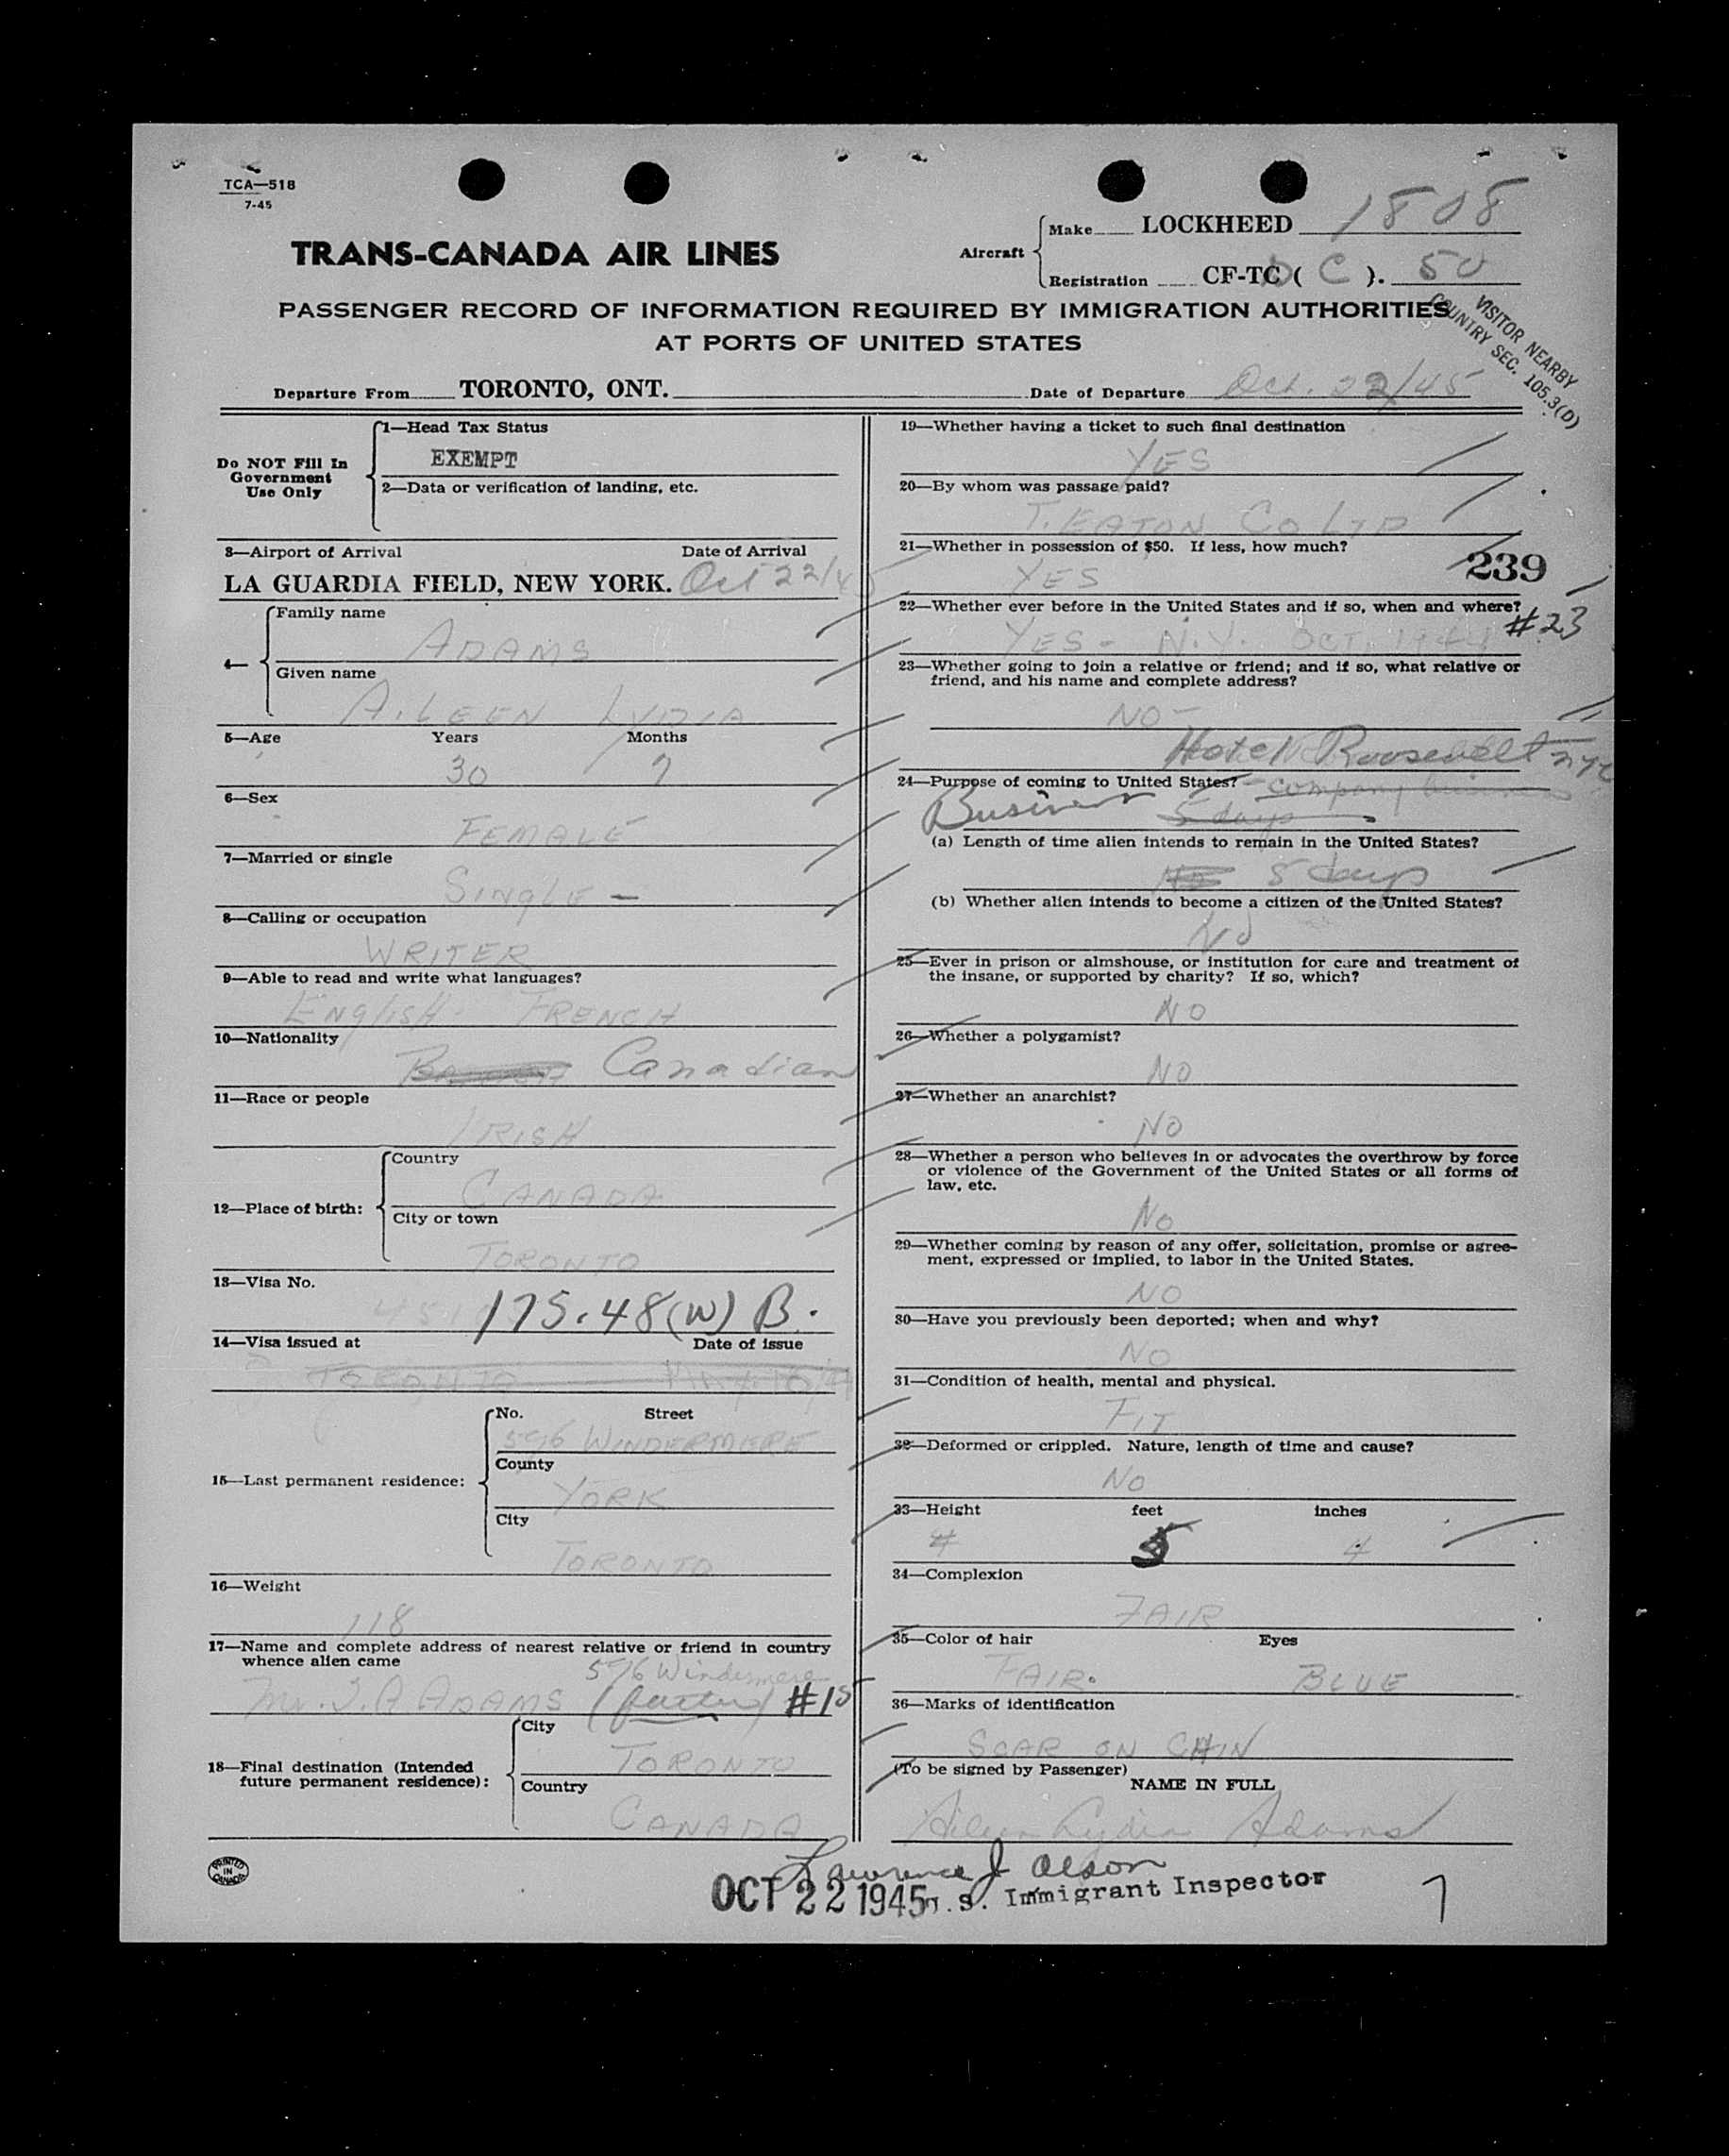 TCA—518
7-45
TRANS-CANADA AIR LINES
Aircraft
Make LOCKHEED 1808
Registration CF-TC ( C ). 50
PASSENGER RECORD OF INFORMATION REQUIRED BY IMMIGRATION AUTHORITIES
AT PORTS OF UNITED STATES
VISITOR NEARBY
COUNTRY SEC. 105.3(D)
Departure From TORONTO, ONT. Date of Departure Oct. 22/45
Do NOT Fill In
Government
Use Only
1—Head Tax Status
EXEMPT
2—Data or verification of landing, etc.
3—Airport of Arrival Date of Arrival
LA GUARDIA FIELD, NEW YORK. Oct 22/45
4—
Family name
ADAMS
Given name
AILEEN LYDIA
5—Age Years Months
30 7
6—Sex
FEMALE
7—Married or single
SINGLE —
8—Calling or occupation
WRITER
9—Able to read and write what languages?
ENGLISH - FRENCH
10—Nationality
Canadian
11—Race or people
IRISH
12—Place of birth:
Country
CANADA
City or town
TORONTO
13—Visa No.
175.48(W) B.
14—Visa issued at Date of issue
TORONTO
15—Last permanent residence:
No. Street
576 WINDERMERE
County
YORK
City
TORONTO
16—Weight
118
17—Name and complete address of nearest relative or friend in country
whence alien came
576 Windermere
Mr. J. A ADAMS (father) #15
18—Final destination (Intended
future permanent residence):
City
TORONTO
Country
CANADA
19—Whether having a ticket to such final destination
YES
20—By whom was passage paid?
T. EATON CO LTD
21—Whether in possession of $50. If less, how much?
YES
239
22—Whether ever before in the United States and if so, when and where?
YES - N.Y. OCT. #23
23—Whether going to join a relative or friend; and if so, what relative or
friend, and his name and complete address?
NO —
Hotel Roosevelt NYC
24—Purpose of coming to United States? - company business
Business 5 days
(a) Length of time alien intends to remain in the United States?
No 5 days
(b) Whether alien intends to become a citizen of the United States?
No
25—Ever in prison or almshouse, or institution for care and treatment of
the insane, or supported by charity? If so, which?
NO
26—Whether a polygamist?
NO
27—Whether an anarchist?
NO
28—Whether a person who believes in or advocates the overthrow by force
or violence of the Government of the United States or all forms of
law, etc.
No
29—Whether coming by reason of any offer, solicitation, promise or agree-
ment, expressed or implied, to labor in the United States.
NO
30—Have you previously been deported; when and why?
NO
31—Condition of health, mental and physical.
FIT
32—Deformed or crippled. Nature, length of time and cause?
NO
33—Height feet inches
4 5 4
34—Complexion
FAIR
35—Color of hair Eyes
FAIR. BLUE
36—Marks of identification
SCAR ON CHIN
(To be signed by Passenger)
NAME IN FULL
Aileen Lydia Adams
Lawrence J Olson
OCT 22 1945 U. S. Immigrant Inspector
7
PRINTED
IN
CANADA